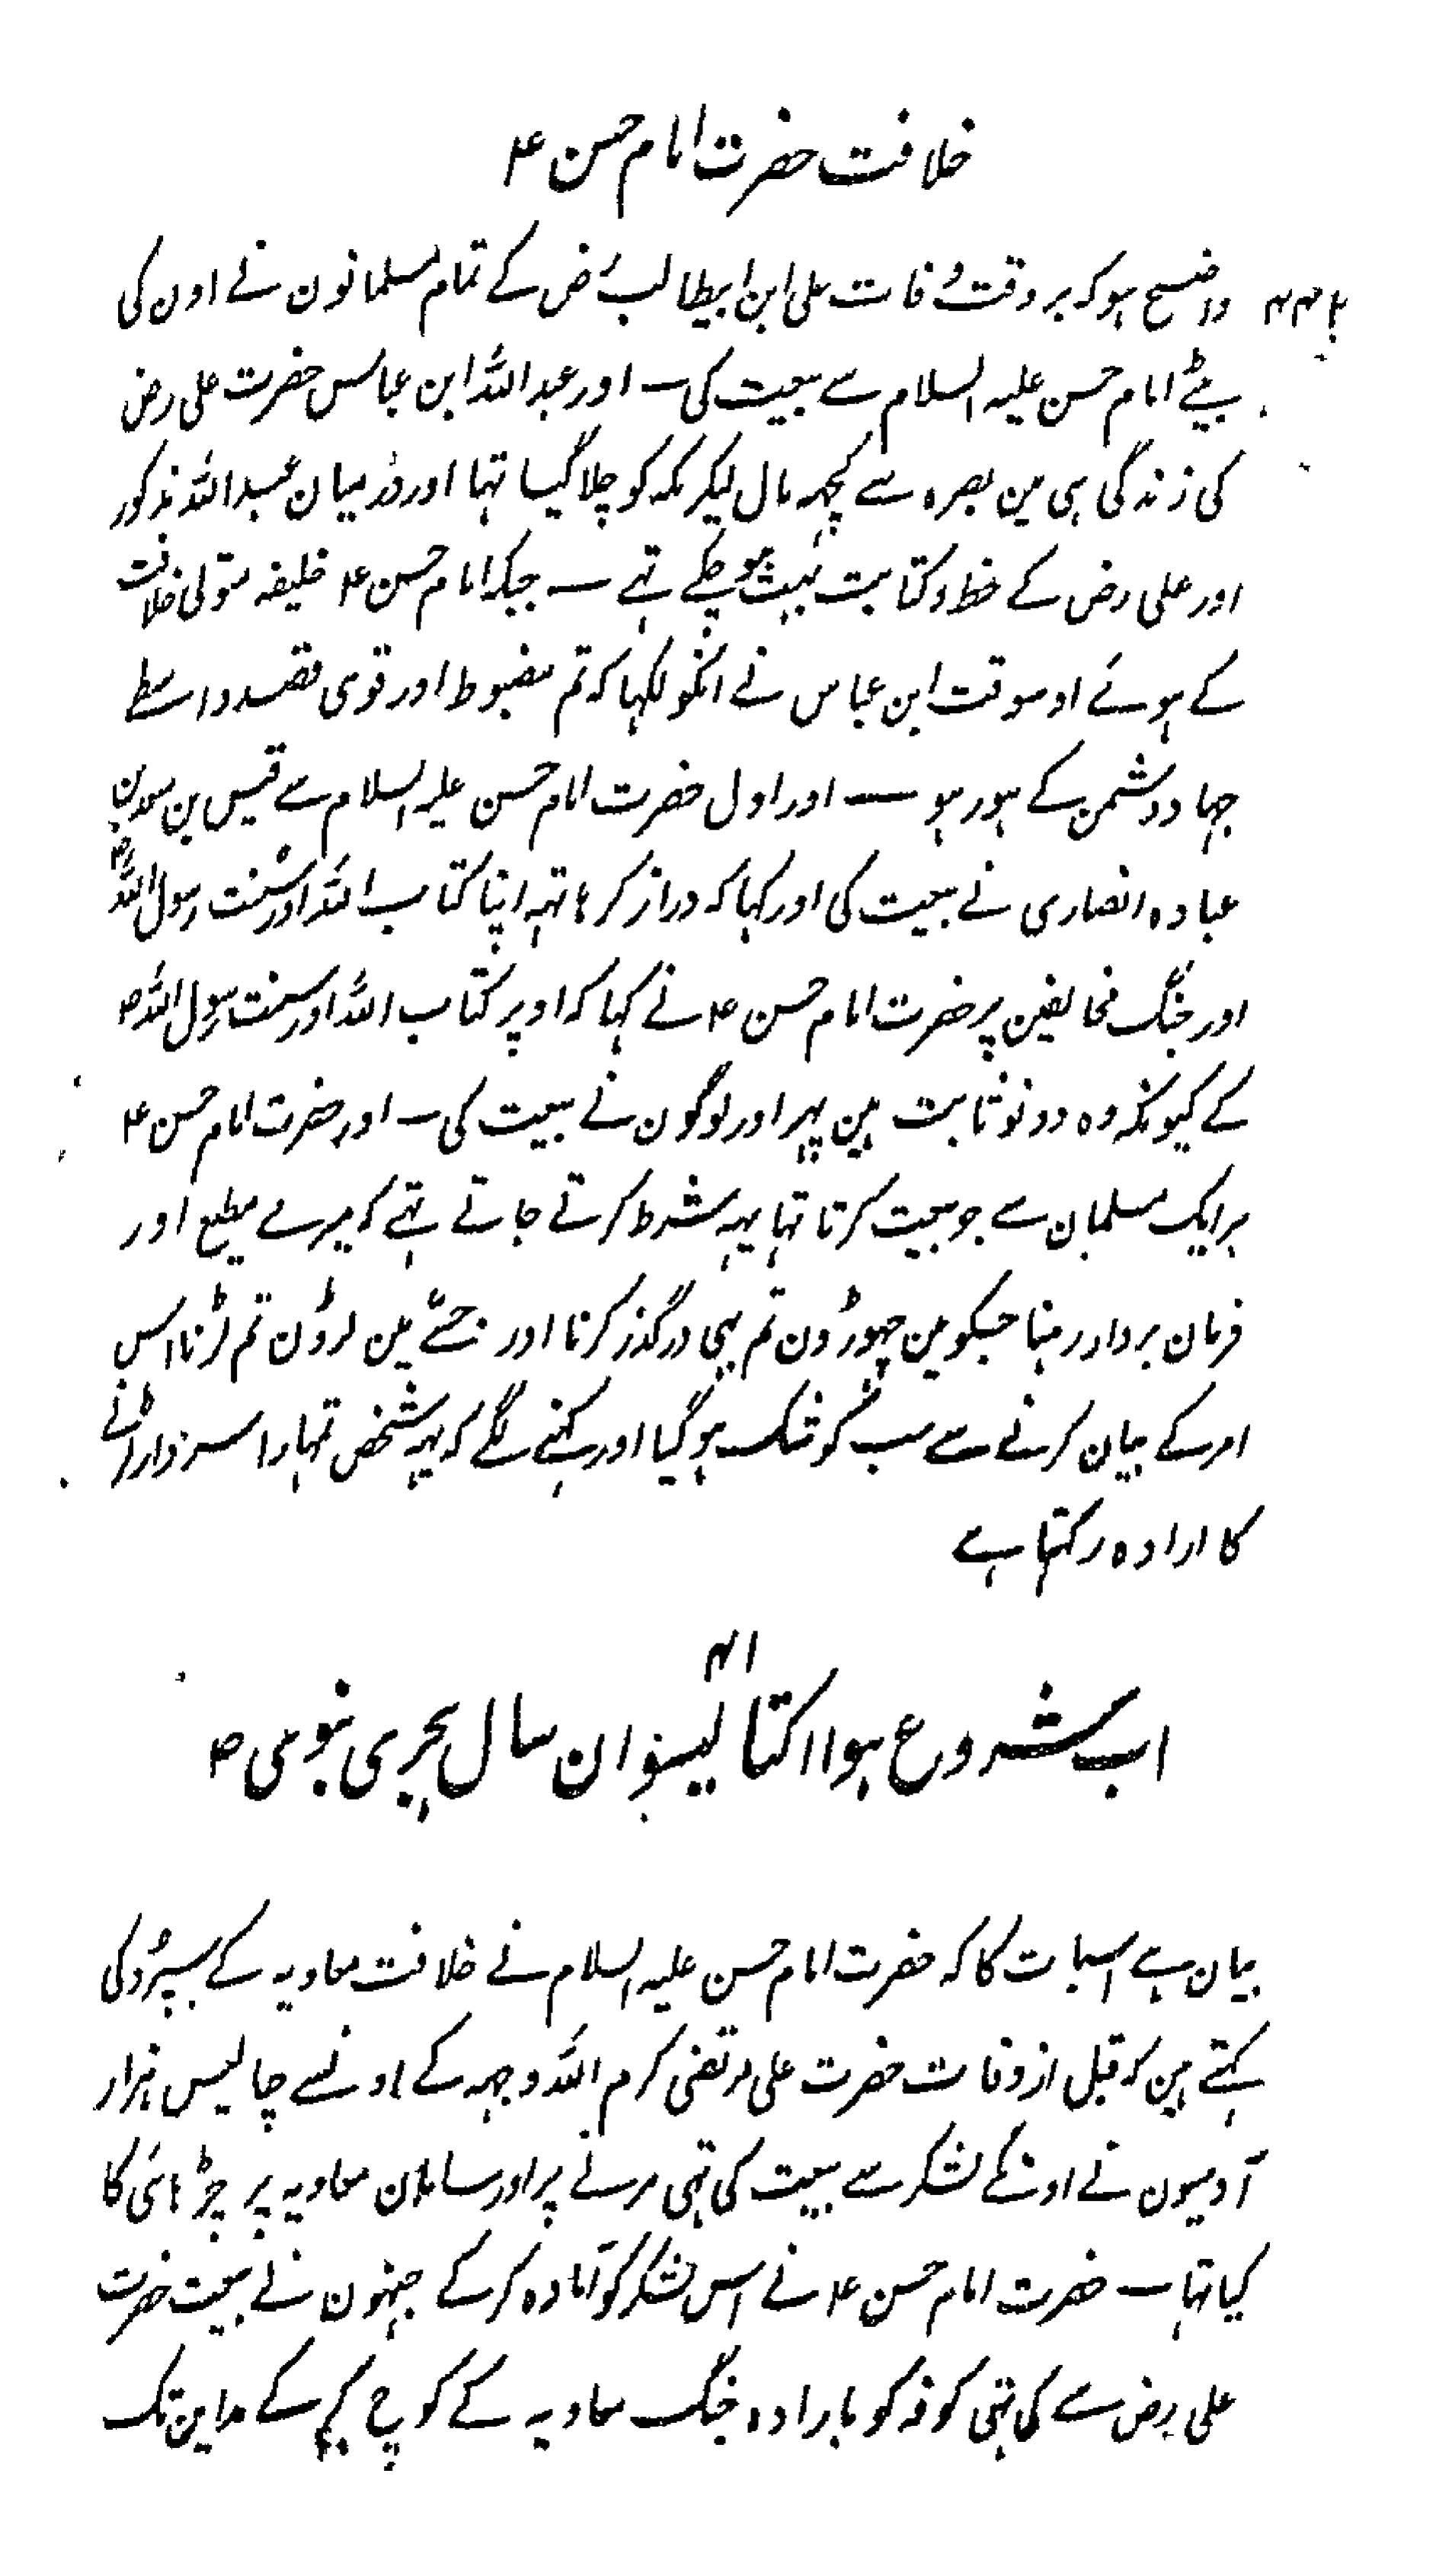 خلافت حضرت امام حسن ع
واضح ہو کہ بر وقت وفات علی ابن ابیطالب رض کے تمام مسلمانون نے اون کی
بیٹے امام حسن علیہ السلام سے بیعت کی ــ اور عبد اللہ ابن عباس حضرت علی رض
کی زندگی ہی مین بصرہ سے کچہہ مال لیکر مکہ کو چلا گیا تہا اور درمیان عبد اللہ مذکور
اور علی رض کے خط و کتابت بہت ہو چکے تہے ــ جبکہ امام حسن ع خلیفہ متولی خلافت
کے ہوئے اوسوقت ابن عباس نے انکو لکہا کہ تم مضبوط اور قوی قصد واسطے
جہاد دشمن کے ہو رہو ــ اور اول حضرت امام حسن علیہ السلام سے قیس بن سعد بن
عبادہ انصاری نے بیعت کی اور کہا کہ دراز کر ہاتہہ اپنا کتاب اللہ اور سنت رسول اللہ ص
اور جنگ مخالفین پر حضرت امام حسن ع نے کہا کہ اوپر کتاب اللہ اور سنت رسول اللہ ص
کے کیونکہ وہ دونو ثابت ہین پہر اور لوگون نے بیعت کی ــ اور حضرت امام حسن ع
ہر ایک مسلمان سے جو بیعت کرتا تہا یہہ شرط کرتے جاتے تہے کہ میرے مطیع اور
فرمان بردار رہنا جسکو مین چہوڑون تم بہی درگذر کرنا اور جسے مین لڑون تم لڑنا اس
امر کے بیان کرنے سے سب کو شک ہو گیا اور کہنے لگے کہ یہہ شخص تمہارا سزوار لڑانے
کا ارادہ رکہتا ہے
۴۱
اب شروع ہوا اکتالیسوان سال ہجری نبوی ص
بیان ہے اسبات کا کہ حضرت امام حسن علیہ السلام نے خلافت معاویہ کے سپرد کی
کہتے ہین کہ قبل از وفات حضرت علی مرتضی کرم اللہ وجہہ کے اونسے چالیس ہزار
آدمیون نے اونکے لشکر سے بیعت کی تہی مرنے پر اور سامان معاویہ پر چڑہائی کا
کیا تہا ــ حضرت امام حسن ع نے اس لشکر کو آمادہ کرکے جنہون نے بیعت حضرت
علی رض سے کی تہی کوفہ کو بارادہ جنگ معاویہ کے کوچ کر کے مداین تک